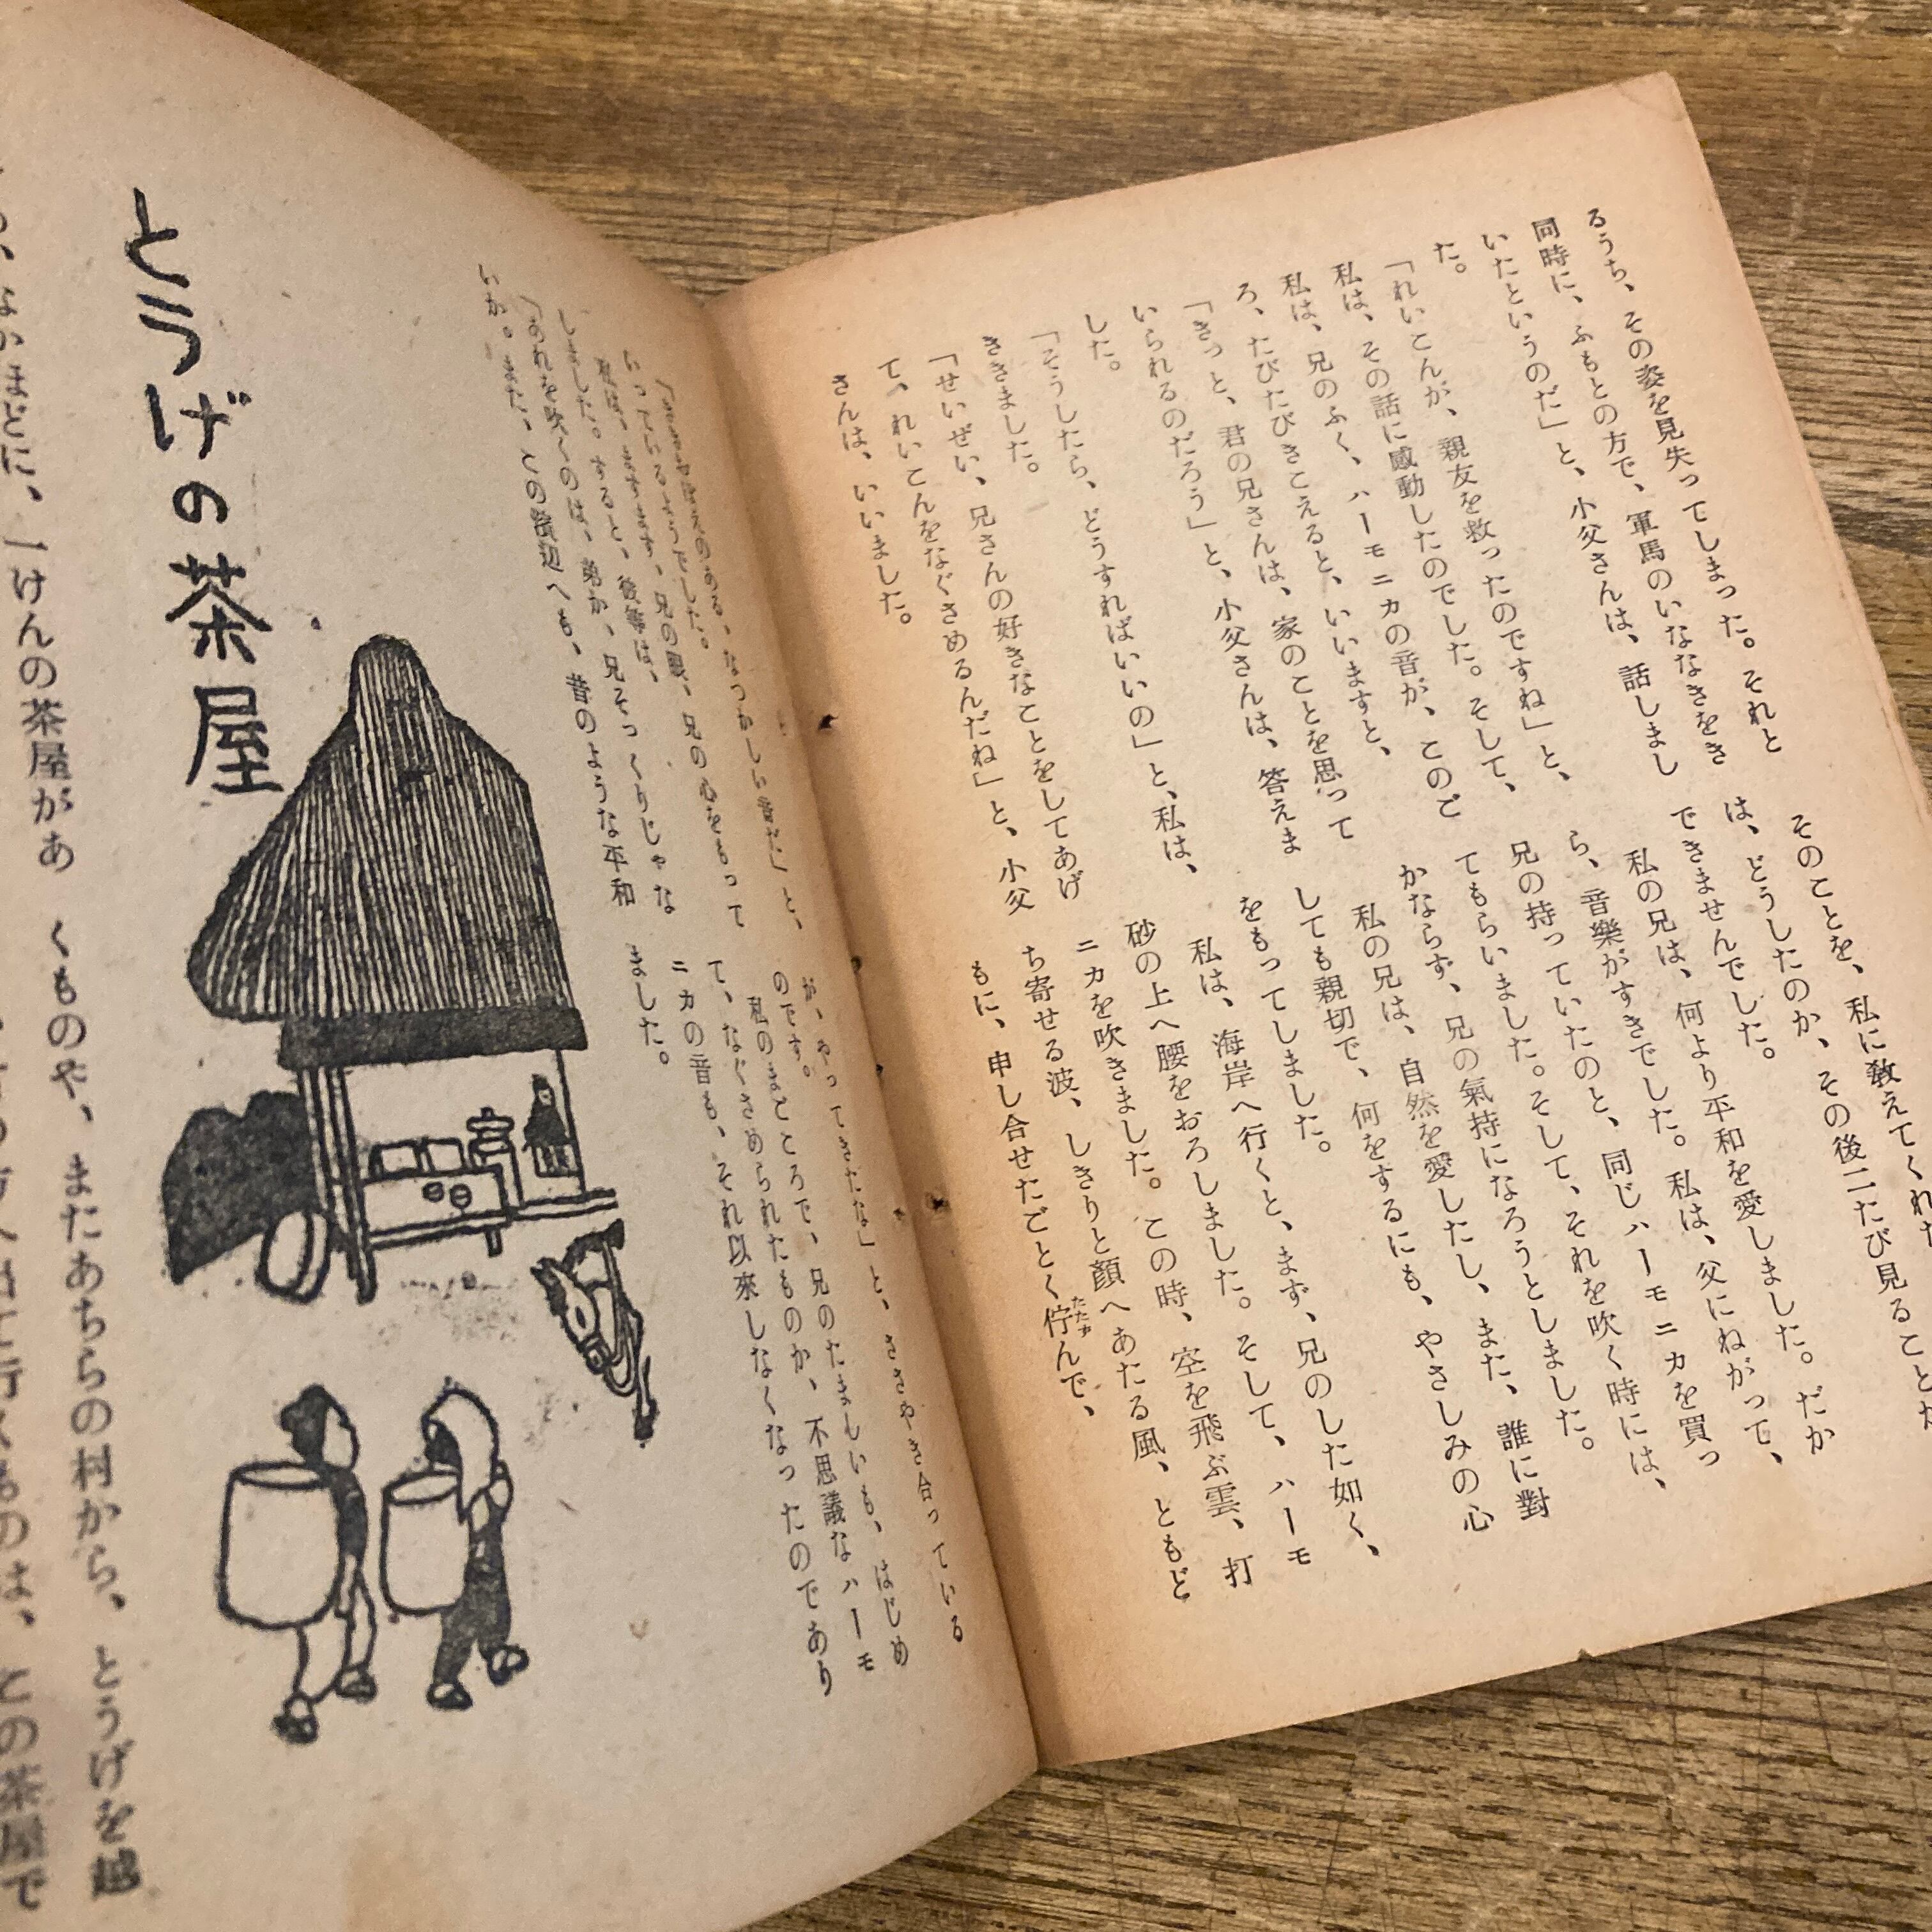 るうち、その姿を見失ってしまった。それと
同時に、ふもとの方で、軍馬のいななきをき
いたというのだ」と、小父さんは、話しまし
た。
「れいこんが、親友を救ったのですね」と、
私は、その話に感動したのでした。そして、
私は、兄のふく、ハーモニカの音が、このご
ろ、たびたびきこえると、いいますと、
「きっと、君の兄さんは、家のことを思って
いられるのだろう」と、小父さんは、答えま
した。
「そうしたら、どうすればいいの」と、私は、
ききました。
「せいぜい、兄さんの好きなことをしてあげ
て、れいこんをなぐさめるんだね」と、小父
さんは、いいました。
そのことを、私に敎えてくれた
は、どうしたのか、その後二たび見ることが
できませんでした。
私の兄は、何より平和を愛しました。だか
ら、音樂がすきでした。私は、父にねがって、
兄の持っていたのと、同じハーモニカを買っ
てもらいました。そして、それを吹く時には、
かならず、兄の氣持になろうとしました。
私の兄は、自然を愛したし、また、誰に對
しても親切で、何をするにも、やさしみの心
をもってしました。
私は、海岸へ行くと、まず、兄のした如く、
砂の上へ腰をおろしました。そして、ハーモ
ニカを吹きました。この時、空を飛ぶ雲、打
ち寄せる波、しきりと顏へあたる風、ともど
もに、申し合せたごとく佇んで、
のある、なつかしい音だ」と、
いっているようでした。
私は、ますます、兄の眼、兄の心をもって
しました。すると、彼等は、
「あれを吹くのは、弟か、兄そっくりじゃな
いか。また、この濱辺へも、昔のような平和
が、やってきたな」と、ささやき合っている
のです。
私のまごころで、兄のたましいも、はじめ
て、なぐさめられたものか、不思議なハーモ
ニカの音も、それ以來しなくなったのであり
ました。
とうげの茶屋
なかほどに、一けんの茶屋があ
くものや、またあちらの村から、とうげを越
行くものは、この茶屋で